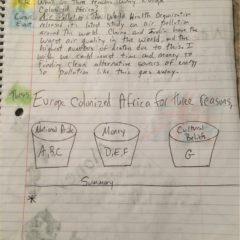 What do three reasons being Europe
Colonized Africa.
Air Pollution: The World Health Organization
released its third study on air pollution
around the world. China and India have the
worst air quality in the world, and the
highest numbers of deaths due to this. I
wish we could invest time and money to
funding clean alternative sources of energy
so pollution like this goes away.
Thesis
Europe Colonized Africa for three reasons,
National Pride
Money
Cultural
Beliefs
A,B,C
D,E,F
G
Summary